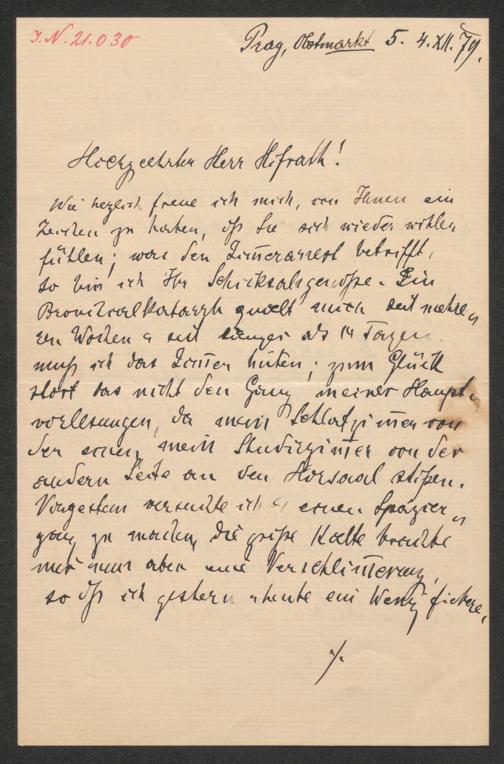 J.N. 21.030
Prag, Obstmarkt 5. 4.XII.79.
Hochgeehrter Herr Hofrath!
Wie herzlich freue ich mich, von Ihnen ein
Zeichen zu haben, dß Sie sich wieder wohler
fühlen; was den Zim̅erarrest betrifft,
so bin ich Ihr Schicksalsgenosse. Ein
Bronchialkatarrh quält mich seit mehre„
ren Wochen u seit länger als 14 Tagen
muß ich das Zim̅er hüten; zum Glück
stört das nicht den Gang meiner Haupt„
vorlesungen, da mein Schlafzim̅er von
der einen, mein Studirzim̅er von der
andern Seite an den Hörsaal stoßen.
Vorgestern versuchte ich einen Spazier„
gang zu machen, die große Kälte brachte
mir nun aber eine Verschlim̅erung,
so dß ich gestern u heute ein wenig fiebere.
./.